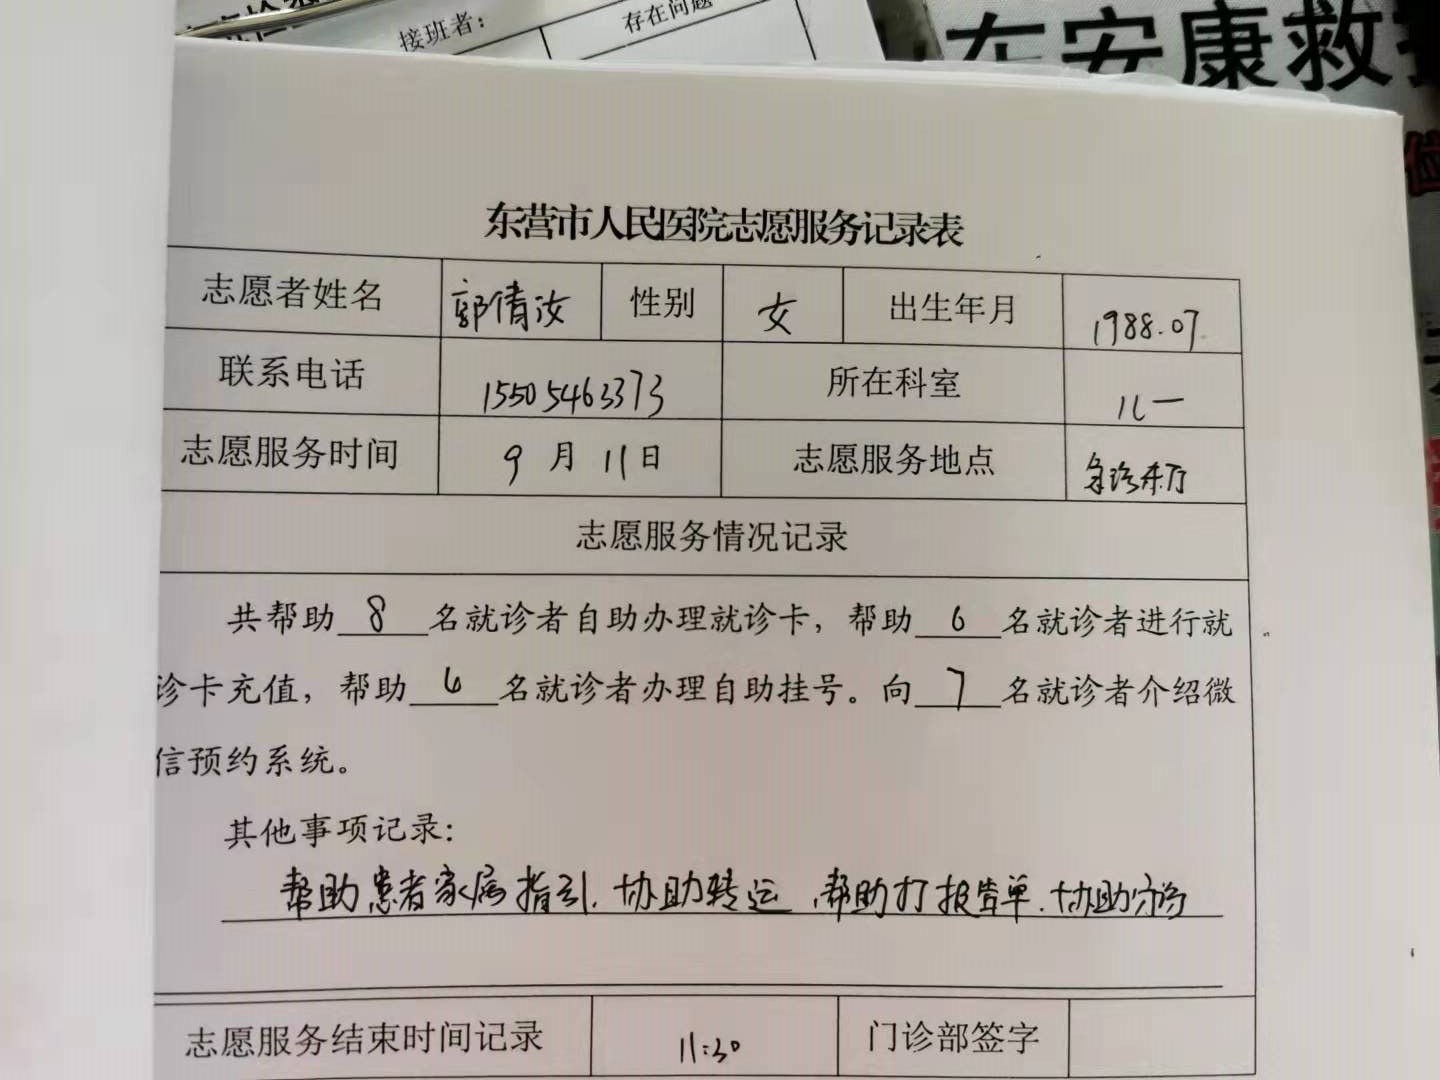 接班者：
存在问题
东安康救
东营市人民医院志愿服务记录表
志愿者姓名 郭倩汝 性别 女 出生年月 1988.07
联系电话 15505463373 所在科室 儿一
志愿服务时间 9月11日 志愿服务地点 急诊东厅
志愿服务情况记录
共帮助 8 名就诊者自助办理就诊卡，帮助 6 名就诊者进行就
诊卡充值，帮助 6 名就诊者办理自助挂号。向 7 名就诊者介绍微
信预约系统。
其他事项记录：
帮助患者家属指引.协助转运,帮助打报告单.协助
志愿服务结束时间记录 11:30 门诊部签字